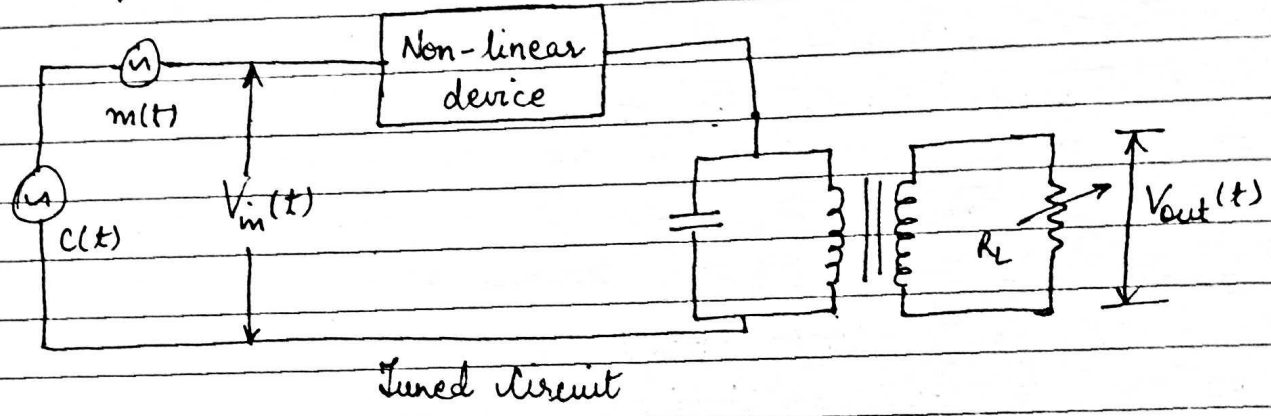 Non-linear
device
m(t)
C(t)
Vin(t)
RL
Vout(t)
Tuned Circuit